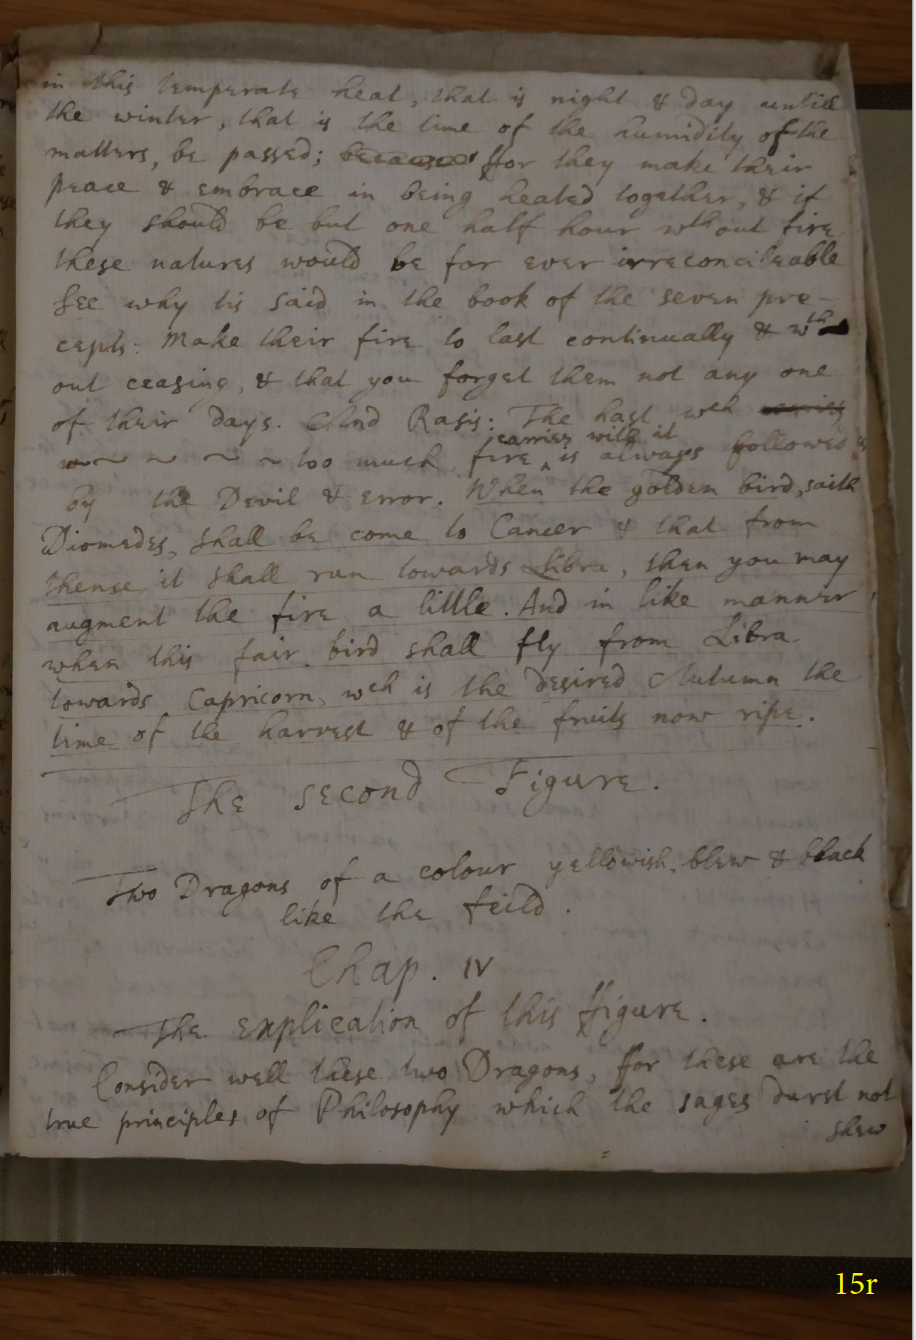 in this temperate heat, that is night & day untill
the winter, that is the time of the humidity of the
matters, be passed; because ffor they make their
peace & embrace in being heated together, & if
they should be but one half hour wthout fire
these natures would be for ever irreconcileable
See why tis said in the book of the seven pre-
cepts: Make their fire to last continually & wth
out ceasing, & that you forget them not any one
of their days. And Rasis: The hast wch
carries with it
too much fire is always followed
by the Devil & error. When the golden bird, saith
Diomedes, shall be come to Cancer & that from
thense it shall run towards Libra, then you may
augment the fire a little. And in like manner
when this fair bird shall fly from Libra
towards Capricorn, wch is the desired Autumn the
time of the harvest & of the fruits now ripe.
The second Figure.
Two Dragons of a colour yellowish, blew & black
like the feild.
Chap. IV
The explication of this ffigure.
Consider well these two Dragons, for these are the
true principles of Philosophy which the sages durst not
shew
15r